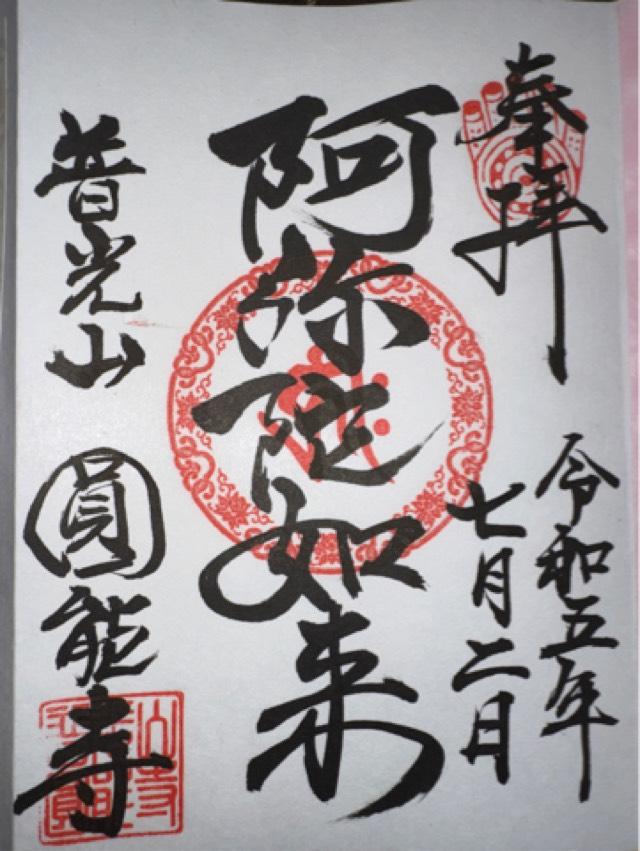 奉拝
令和五年
七月二日
阿弥陀如来
普光山
圓能寺